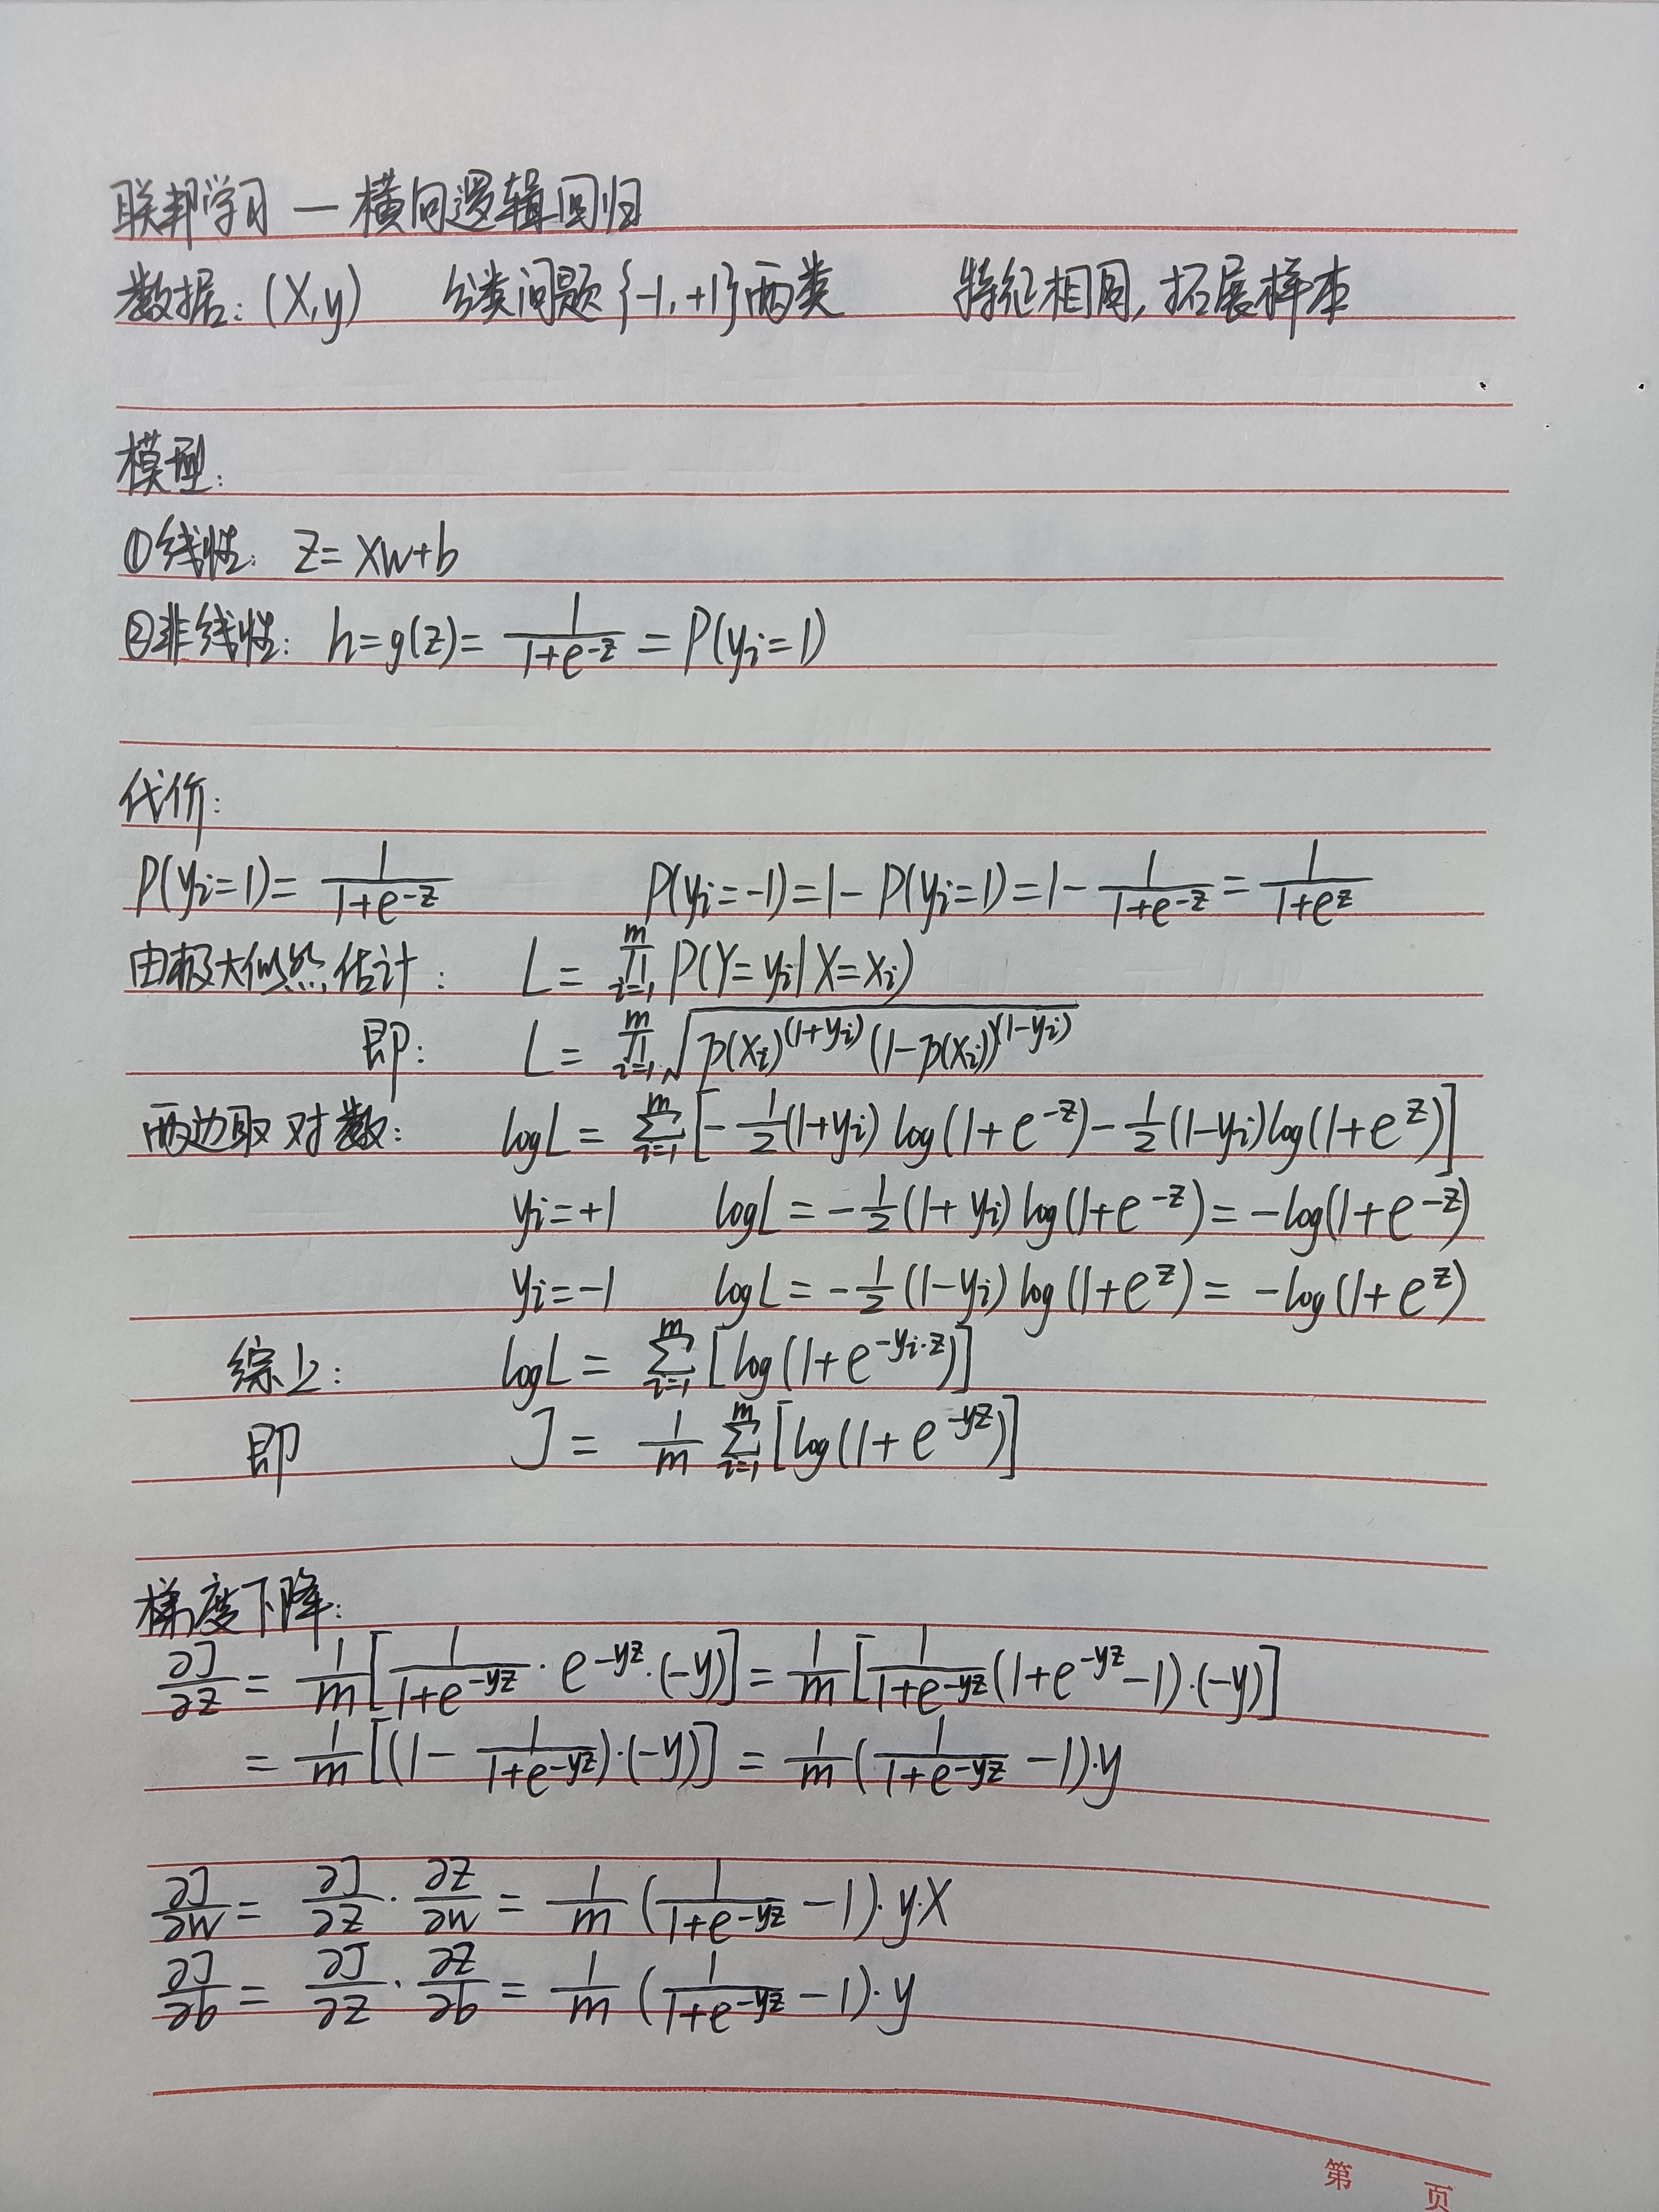 联邦学习 — 横向逻辑回归
数据: (X,y) 分类问题{-1,+1}两类 特征相同,拓展样本
模型:
①线性: z= Xw+b
②非线性: h=g(z)= \frac{1}{1+e^{-z}} = P(y_i=1)
代价:
P(y_i=1)= \frac{1}{1+e^{-z}} P(y_i=-1)=1- P(y_i=1)=1- \frac{1}{1+e^{-z}} = \frac{1}{1+e^z}
由极大似然估计: L= \prod_{i=1}^{m} P(Y=y_i|X=x_i)
即: L= \prod_{i=1}^{m} \sqrt{p(x_i)^{(1+y_i)} (1-p(x_i))^{(1-y_i)}}
两边取对数: logL = \sum_{i=1}^{m} [-\frac{1}{2}(1+y_i) log(1+e^{-z})-\frac{1}{2}(1-y_i)log(1+e^z)]
y_i=+1 logL=-\frac{1}{2}(1+y_i) log(1+e^{-z})= -log(1+e^{-z})
y_i=-1 logL=-\frac{1}{2}(1-y_i) log(1+e^z)= -log(1+e^z)
综上: logL= \sum_{i=1}^{m} [log(1+e^{-y_i·z})]
即 J= \frac{1}{m} \sum_{i=1}^{m} [log(1+e^{-yz})]
梯度下降:
\frac{∂J}{∂z} = \frac{1}{m} [\frac{1}{1+e^{-yz}} · e^{-yz}·(-y)] = \frac{1}{m} [\frac{1}{1+e^{-yz}} (1+e^{-yz}-1)·(-y)]
= \frac{1}{m} [(1- \frac{1}{1+e^{-yz}})·(-y)] = \frac{1}{m} (\frac{1}{1+e^{-yz}} -1)·y
\frac{∂J}{∂w} = \frac{∂J}{∂z} · \frac{∂z}{∂w} = \frac{1}{m} (\frac{1}{1+e^{-yz}} -1)·y·X
\frac{∂J}{∂b} = \frac{∂J}{∂z} · \frac{∂z}{∂b} = \frac{1}{m} (\frac{1}{1+e^{-yz}} -1)·y
第 页